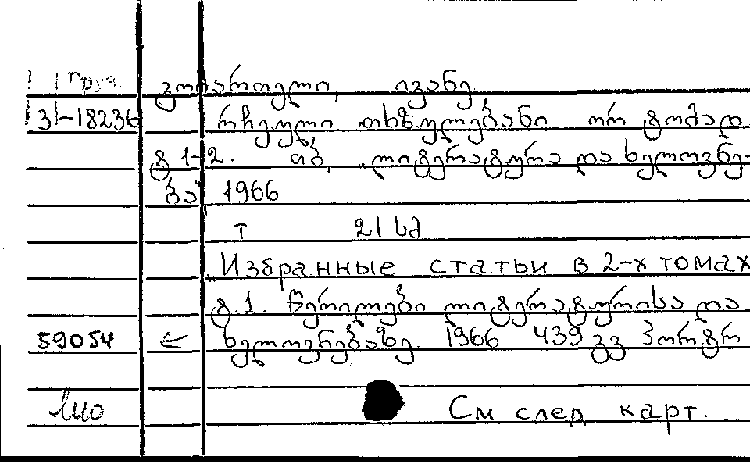 Груз. გომართელი, ივანე
31-18236 რჩეული თხზულებანი ორ ტომად.
ტ 1-2. თბ, „ლიტერატურა და ხელოვნე-
ბა" 1966
т 21 სმ
Избранные статьи в 2-х томах
ტ.1. წერილები ლიტერატურისა და
59054 ხელოვნებაზე. 1966 439 გვ პორტრ
См след карт.